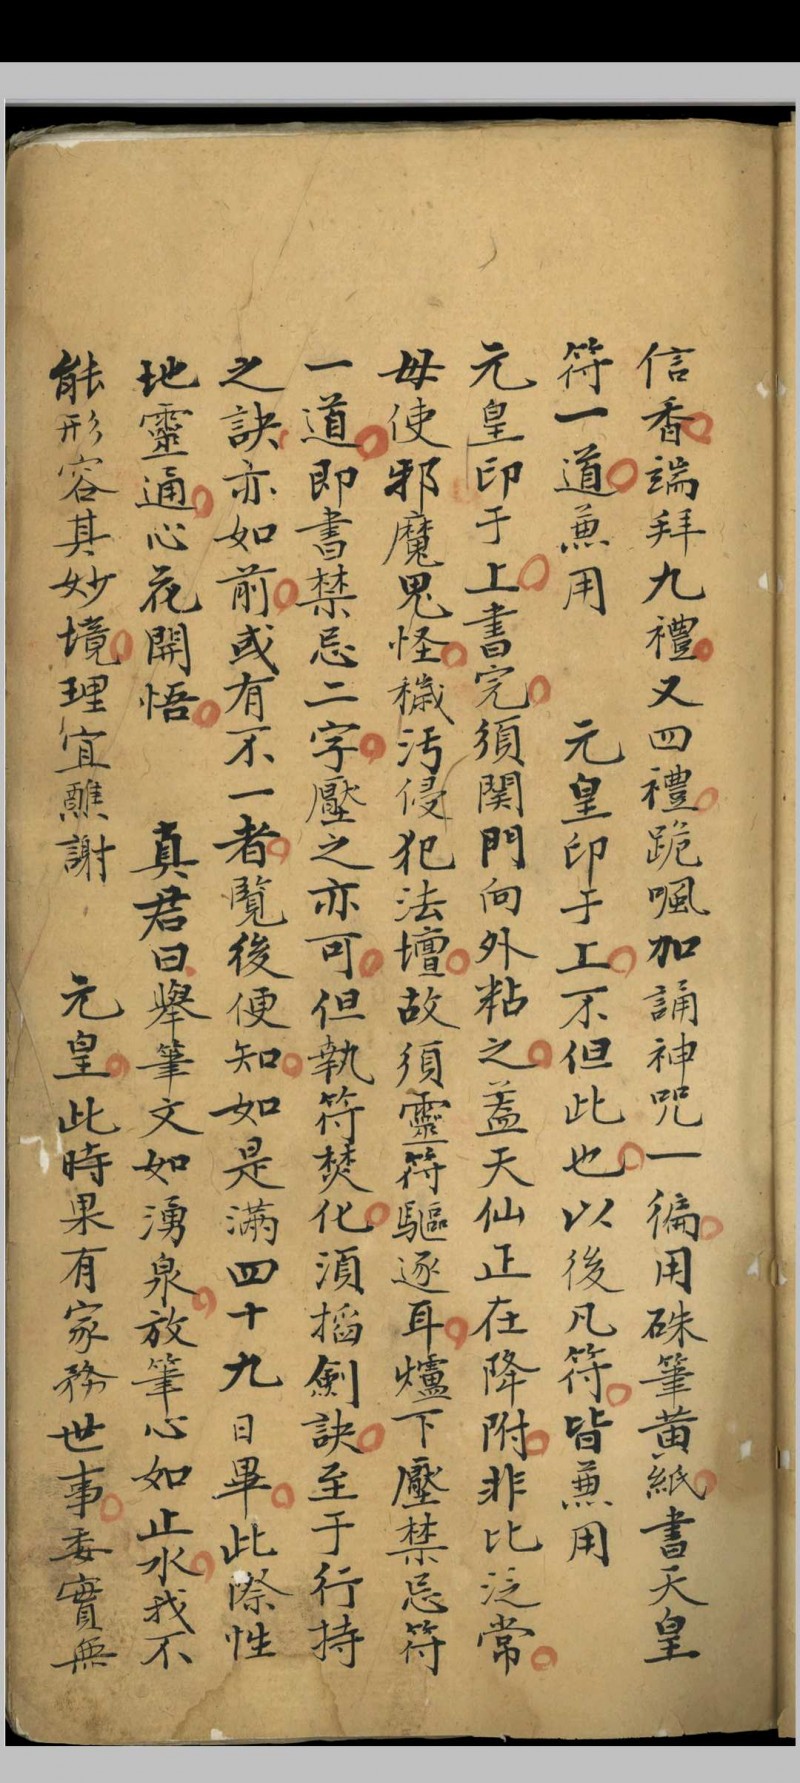 信香端拜九禮又四禮跪嘬加誦神咒一徧用硃筆黃紙書天皇
符一道蕪用　元皇印于上不但此也以後凡符皆蕪用
元皇印于上書完須関門向外粘之葢天仙正在降附非比泛常
毋使邪魔鬼怪穢污侵犯法壇故須靈符驅逐耳爐下壓禁忌符
一道即書禁忌二字壓之亦可但執符焚化須搯劍訣至于行持
之訣亦如前或有不一者覽後便知如是滿四十九日畢此際性
地靈通心花開悟　真君曰舉筆文如湧泉放筆心如止水我不
能形容其妙境理宜醮謝　元皇此時果有家務世事委實無